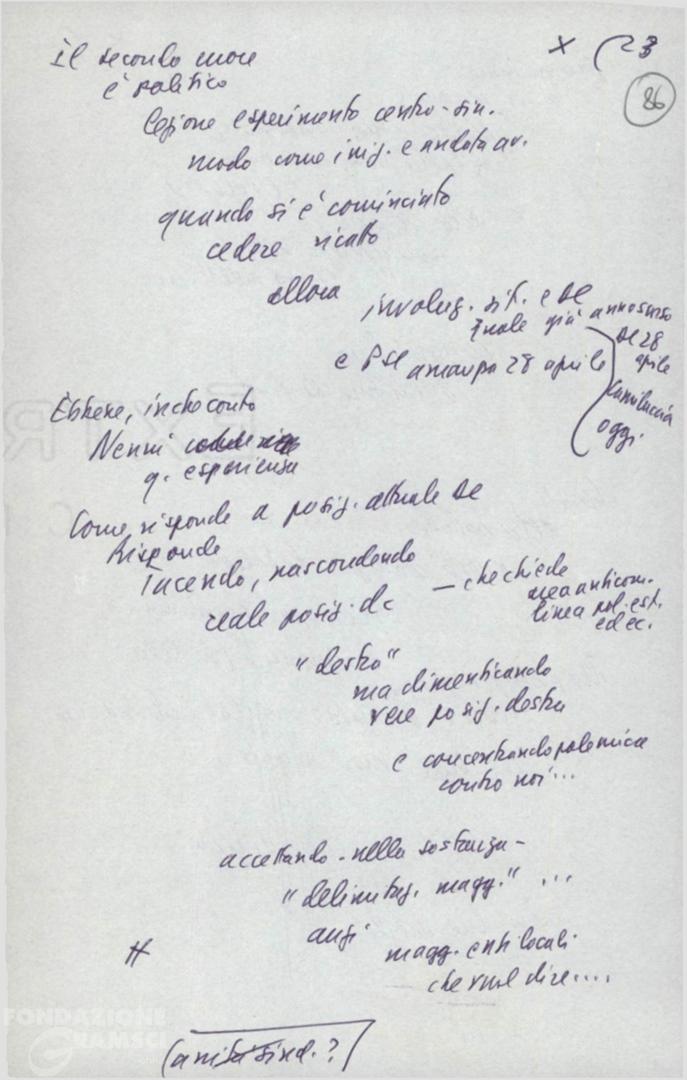 il secondo
è politico
x (23
86
lezione esperimento centro-sin.
modo come iniz. e andata av.
quando si è cominciato
cedere ricatto
allora involuz. sit. e DC
quale già anno scorso
DC 28
aprile
Camilluccia
oggi
e PSI 28 aprile
Ebbene,
Nenni
q. esperienza
Come risponde a posiz. attuale DC
Risponde
Tacendo, nascondendo
reale posiz. dc
— che chiede
area anticom.
linea pol. est.
ed ec.
"destra"
ma dimenticando
vere posiz. destra
e concentrando polemica
contro noi...
accettando - nella sostanza -
"delimitaz. magg." ...
anzi
magg. enti locali
che vuol dire....
#
sind.?)
FONDAZIONE
GRAMSCI